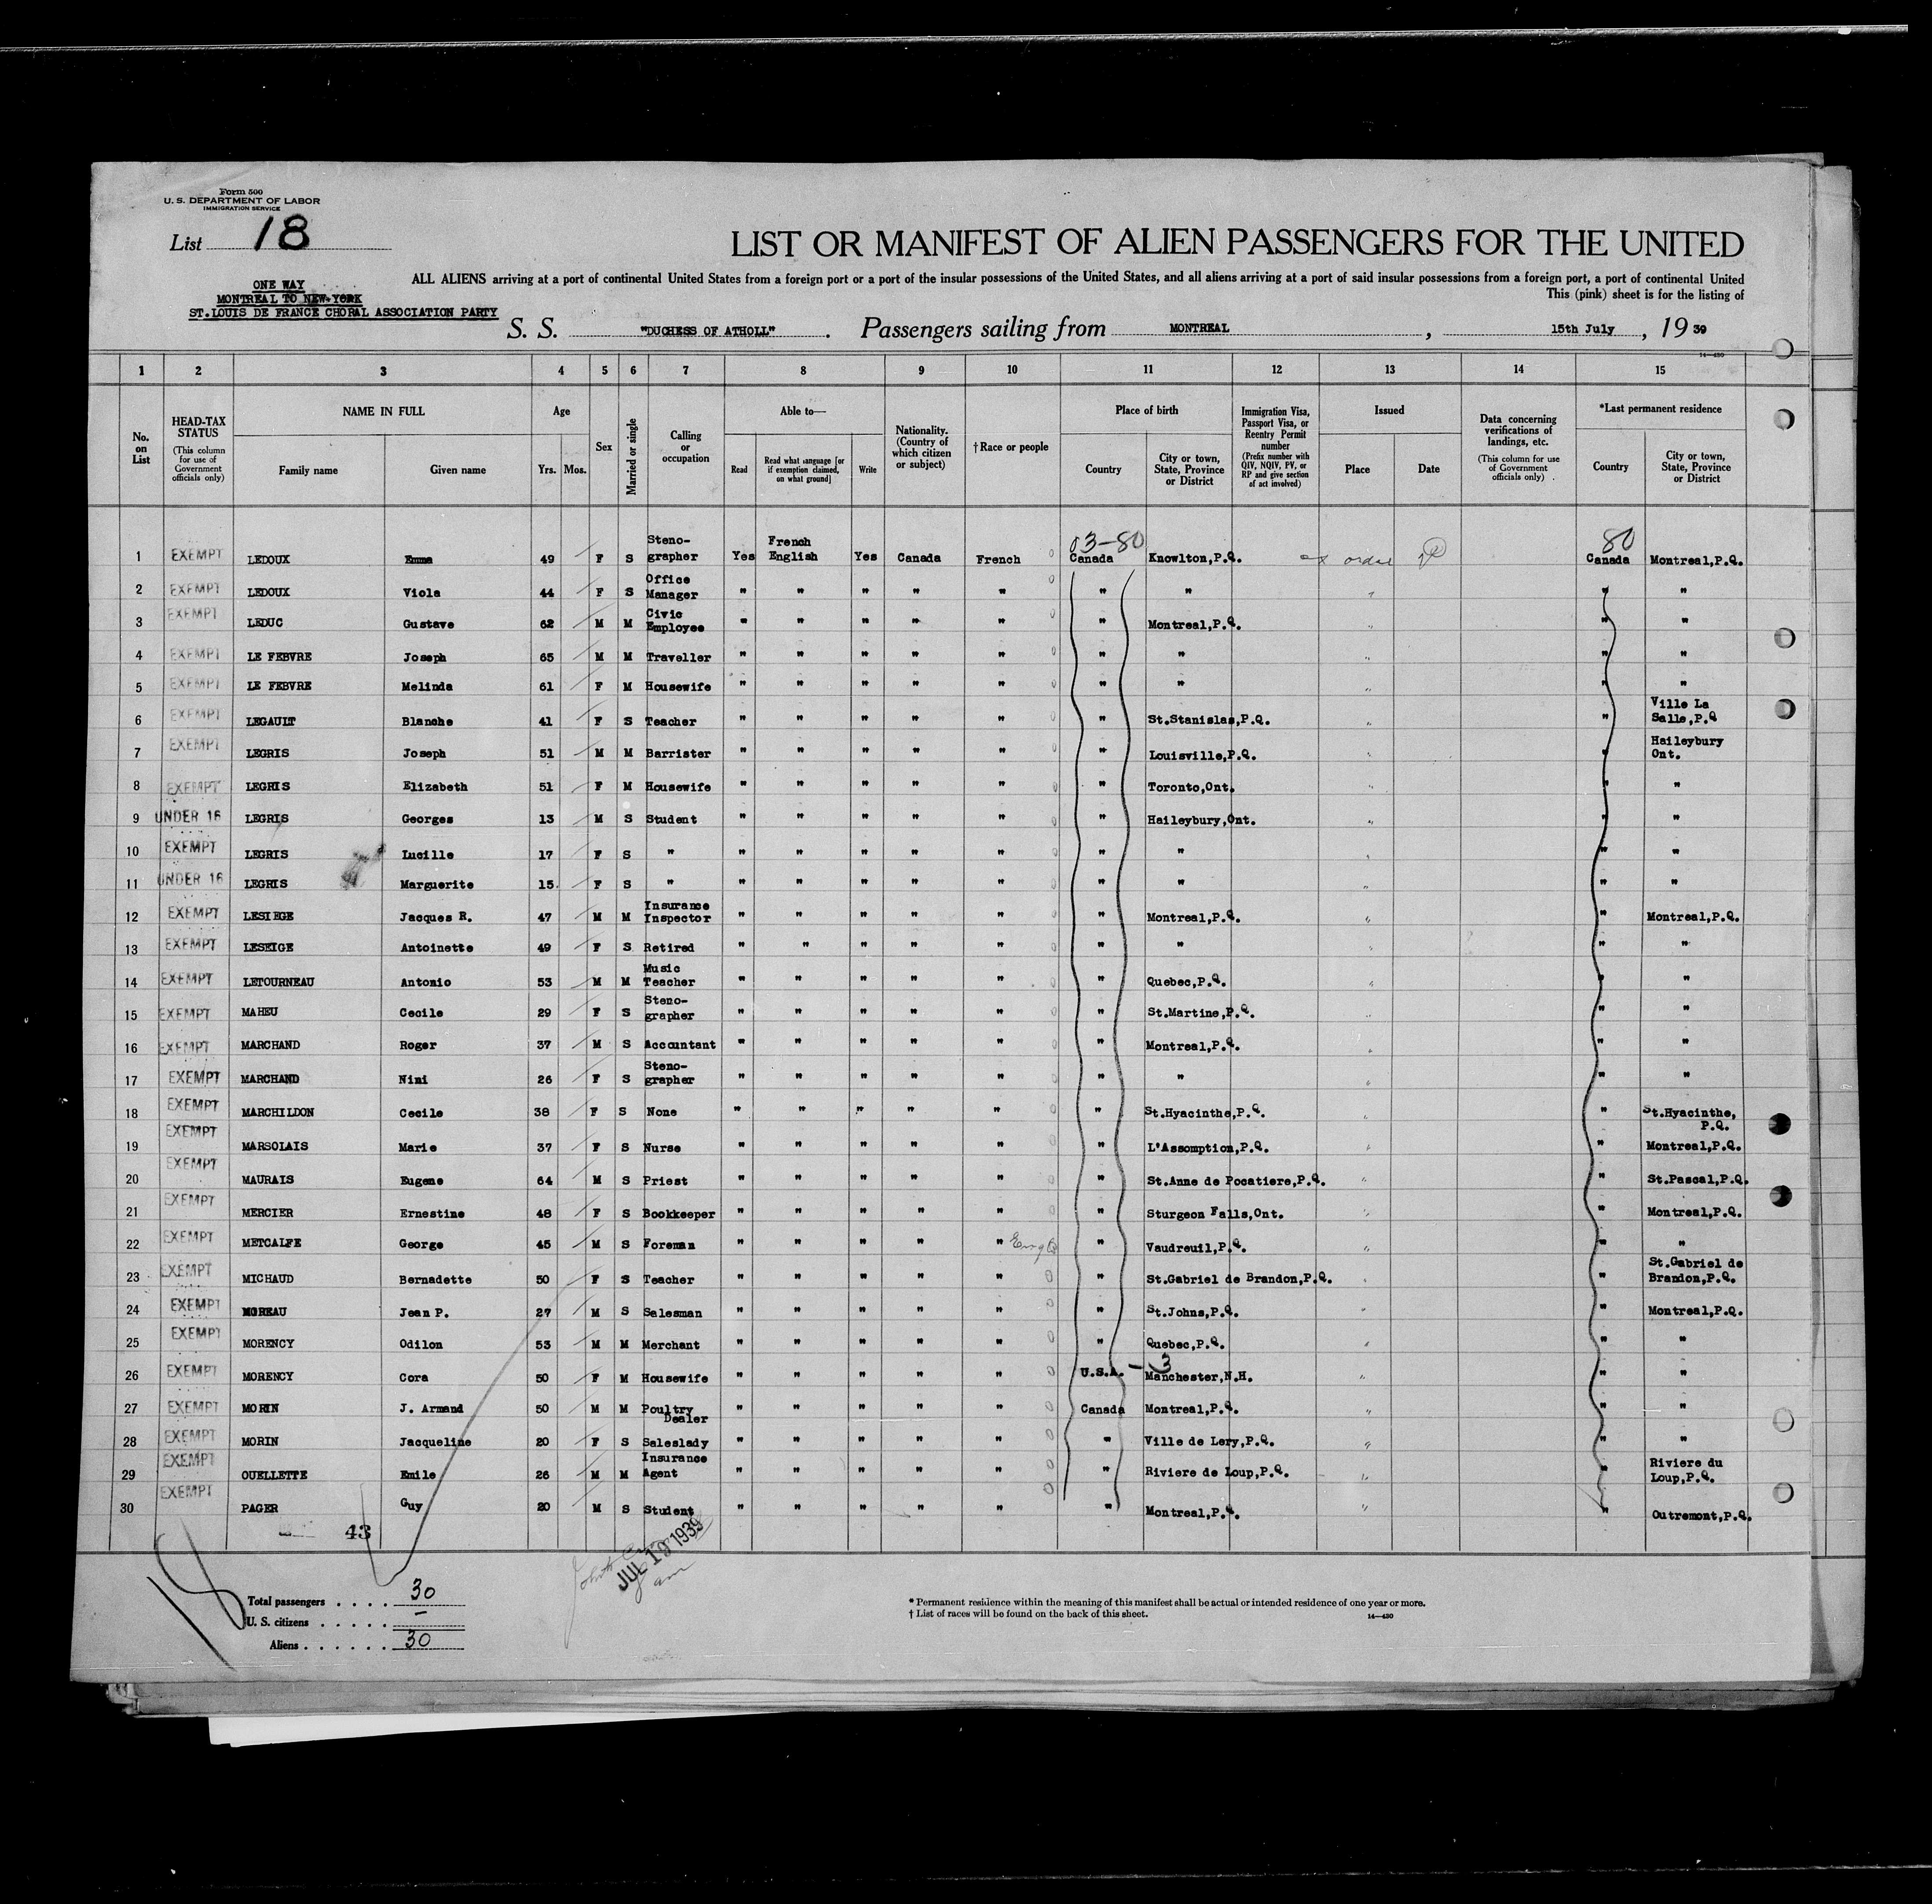 Form 500
U. S. DEPARTMENT OF LABOR
IMMIGRATION SERVICE
List 18
LIST OR MANIFEST OF ALIEN PASSENGERS FOR THE UNITED
ONE WAY
MONTREAL TO NEW-YORK
ST.LOUIS DE FRANCE CHORAL ASSOCIATION PARTY
ALL ALIENS arriving at a port of continental United States from a foreign port or a port of the insular possessions of the United States, and all aliens arriving at a port of said insular possessions from a foreign port, a port of continental United
This (pink) sheet is for the listing of
S. S. "DUCHESS OF ATHOLL". Passengers sailing from MONTREAL, 15th July, 1939
14—430
1 2 3 4 5 6 7 8 9 10 11 12 13 14 15
No. on List
HEAD-TAX STATUS (This column for use of Government officials only)
NAME IN FULL
Family name Given name
Age
Yrs. Mos.
Sex
Married or single
Calling or occupation
Able to—
Read
Read what language [or if exemption claimed, on what ground]
Write
Nationality. (Country of which citizen or subject)
†Race or people
Place of birth
Country
City or town, State, Province or District
Immigration Visa, Passport Visa, or Reentry Permit number (Prefix number with QIV, NQIV, PV, or RP and give section of act involved)
Issued
Place Date
Data concerning verifications of landings, etc. (This column for use of Government officials only)
*Last permanent residence
Country
City or town, State, Province or District
03-80 80
1 EXEMPT LEDOUX Emma 49 F S Steno-grapher Yes French English Yes Canada French Canada Knowlton,P.Q. ex order Canada Montreal,P.Q.
2 EXEMPT LEDOUX Viola 44 F S Office Manager " " " " " " " " "
3 EXEMPT LEDUC Gustave 62 M M Civic Employee " " " " " " Montreal,P.Q. " "
4 EXEMPT LE FEBVRE Joseph 65 M M Traveller " " " " " " " " "
5 EXEMPT LE FEBVRE Melinda 61 F M Housewife " " " " " " " " "
6 EXEMPT LEGAULT Blanche 41 F S Teacher " " " " " " St.Stanislas,P.Q. " Ville La Salle,P.Q
7 EXEMPT LEGRIS Joseph 51 M M Barrister " " " " " " Louisville,P.Q. " Haileybury Ont.
8 EXEMPT LEGRIS Elizabeth 51 F M Housewife " " " " " " Toronto,Ont. " "
9 UNDER 16 LEGRIS Georges 13 M S Student " " " " " " Haileybury,Ont. " "
10 EXEMPT LEGRIS Lucille 17 F S " " " " " " " " " "
11 UNDER 16 LEGRIS Marguerite 15 F S " " " " " " " " " "
12 EXEMPT LESIEGE Jacques R. 47 M M Insurance Inspector " " " " " " Montreal,P.Q. " Montreal,P.Q.
13 EXEMPT LESEIGE Antoinette 49 F S Retired " " " " " " " " "
14 EXEMPT LETOURNEAU Antonio 53 M M Music Teacher " " " " " " Quebec,P.Q. " "
15 EXEMPT MAHEU Cecile 29 F S Steno-grapher " " " " " " St.Martine,P.Q. " "
16 EXEMPT MARCHAND Roger 37 M S Accountant " " " " " " Montreal,P.Q. " "
17 EXEMPT MARCHAND Nini 26 F S Steno-grapher " " " " " " " " "
18 EXEMPT MARCHILDON Cecile 38 F S None " " " " " " St.Hyacinthe,P.Q. " St.Hyacinthe, P.Q.
19 EXEMPT MARSOLAIS Marie 37 F S Nurse " " " " " " L'Assomption,P.Q. " Montreal,P.Q.
20 EXEMPT MAURAIS Eugene 64 M S Priest " " " " " " St.Anne de Pocatiere,P.Q. " St.Pascal,P.Q.
21 EXEMPT MERCIER Ernestine 48 F S Bookkeeper " " " " " " Sturgeon Falls,Ont. " Montreal,P.Q.
22 EXEMPT METCALFE George 45 M S Foreman " " " " " " Vaudreuil,P.Q. " "
23 EXEMPT MICHAUD Bernadette 50 F S Teacher " " " " " " St.Gabriel de Brandon,P.Q. " St.Gabriel de Brandon,P.Q.
24 EXEMPT MOREAU Jean P. 27 M S Salesman " " " " " " St.Johns,P.Q. " Montreal,P.Q.
25 EXEMPT MORENCY Odilon 53 M M Merchant " " " " " " Quebec,P.Q. " "
26 EXEMPT MORENCY Cora 50 F M Housewife " " " " " U.S.A. - 3 Manchester,N.H. " "
27 EXEMPT MORIN J. Armand 50 M M Poultry Dealer " " " " " Canada Montreal,P.Q. " "
28 EXEMPT MORIN Jacqueline 20 F S Saleslady " " " " " " Ville de Lery,P.Q. " "
29 EXEMPT OUELLETTE Emile 26 M M Insurance Agent " " " " " " Riviere de Loup,P.Q. " Riviere du Loup,P.Q.
30 EXEMPT PAGER Guy 20 M S Student " " " " " " Montreal,P.Q. " Outremont,P.Q.
43
JUL 19 1939
18
Total passengers .... 30
U. S. citizens ..... —
Aliens ...... 30
* Permanent residence within the meaning of this manifest shall be actual or intended residence of one year or more.
† List of races will be found on the back of this sheet. 14—430